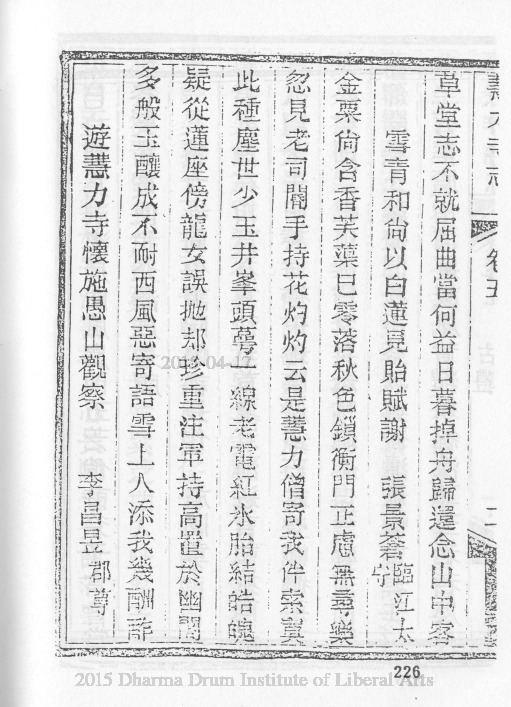 慧力寺志 卷五 二
草堂志不就屈曲當何益日暮掉舟歸還念山中客
雪青和尚以白蓮見貽賦謝 張景蒼臨江太守
金粟尚含香芙蕖已零落秋色鎖衡門正慮無尋樂
忽見老司閽手持花灼灼云是慧力僧寄我伴索寞
此種塵世少玉井峯頭蕚一線老電紅氷胎結皓魄
疑從蓮座傍龍女誤拋却珍重注軍持高置於幽閣
多般玉釀成不耐西風惡寄語雪上人添我幾酬酢
遊慧力寺懷施愚山觀察 李昌昱郡尊
226
2015-04-17
2015 Dharma Drum Institute of Liberal Arts